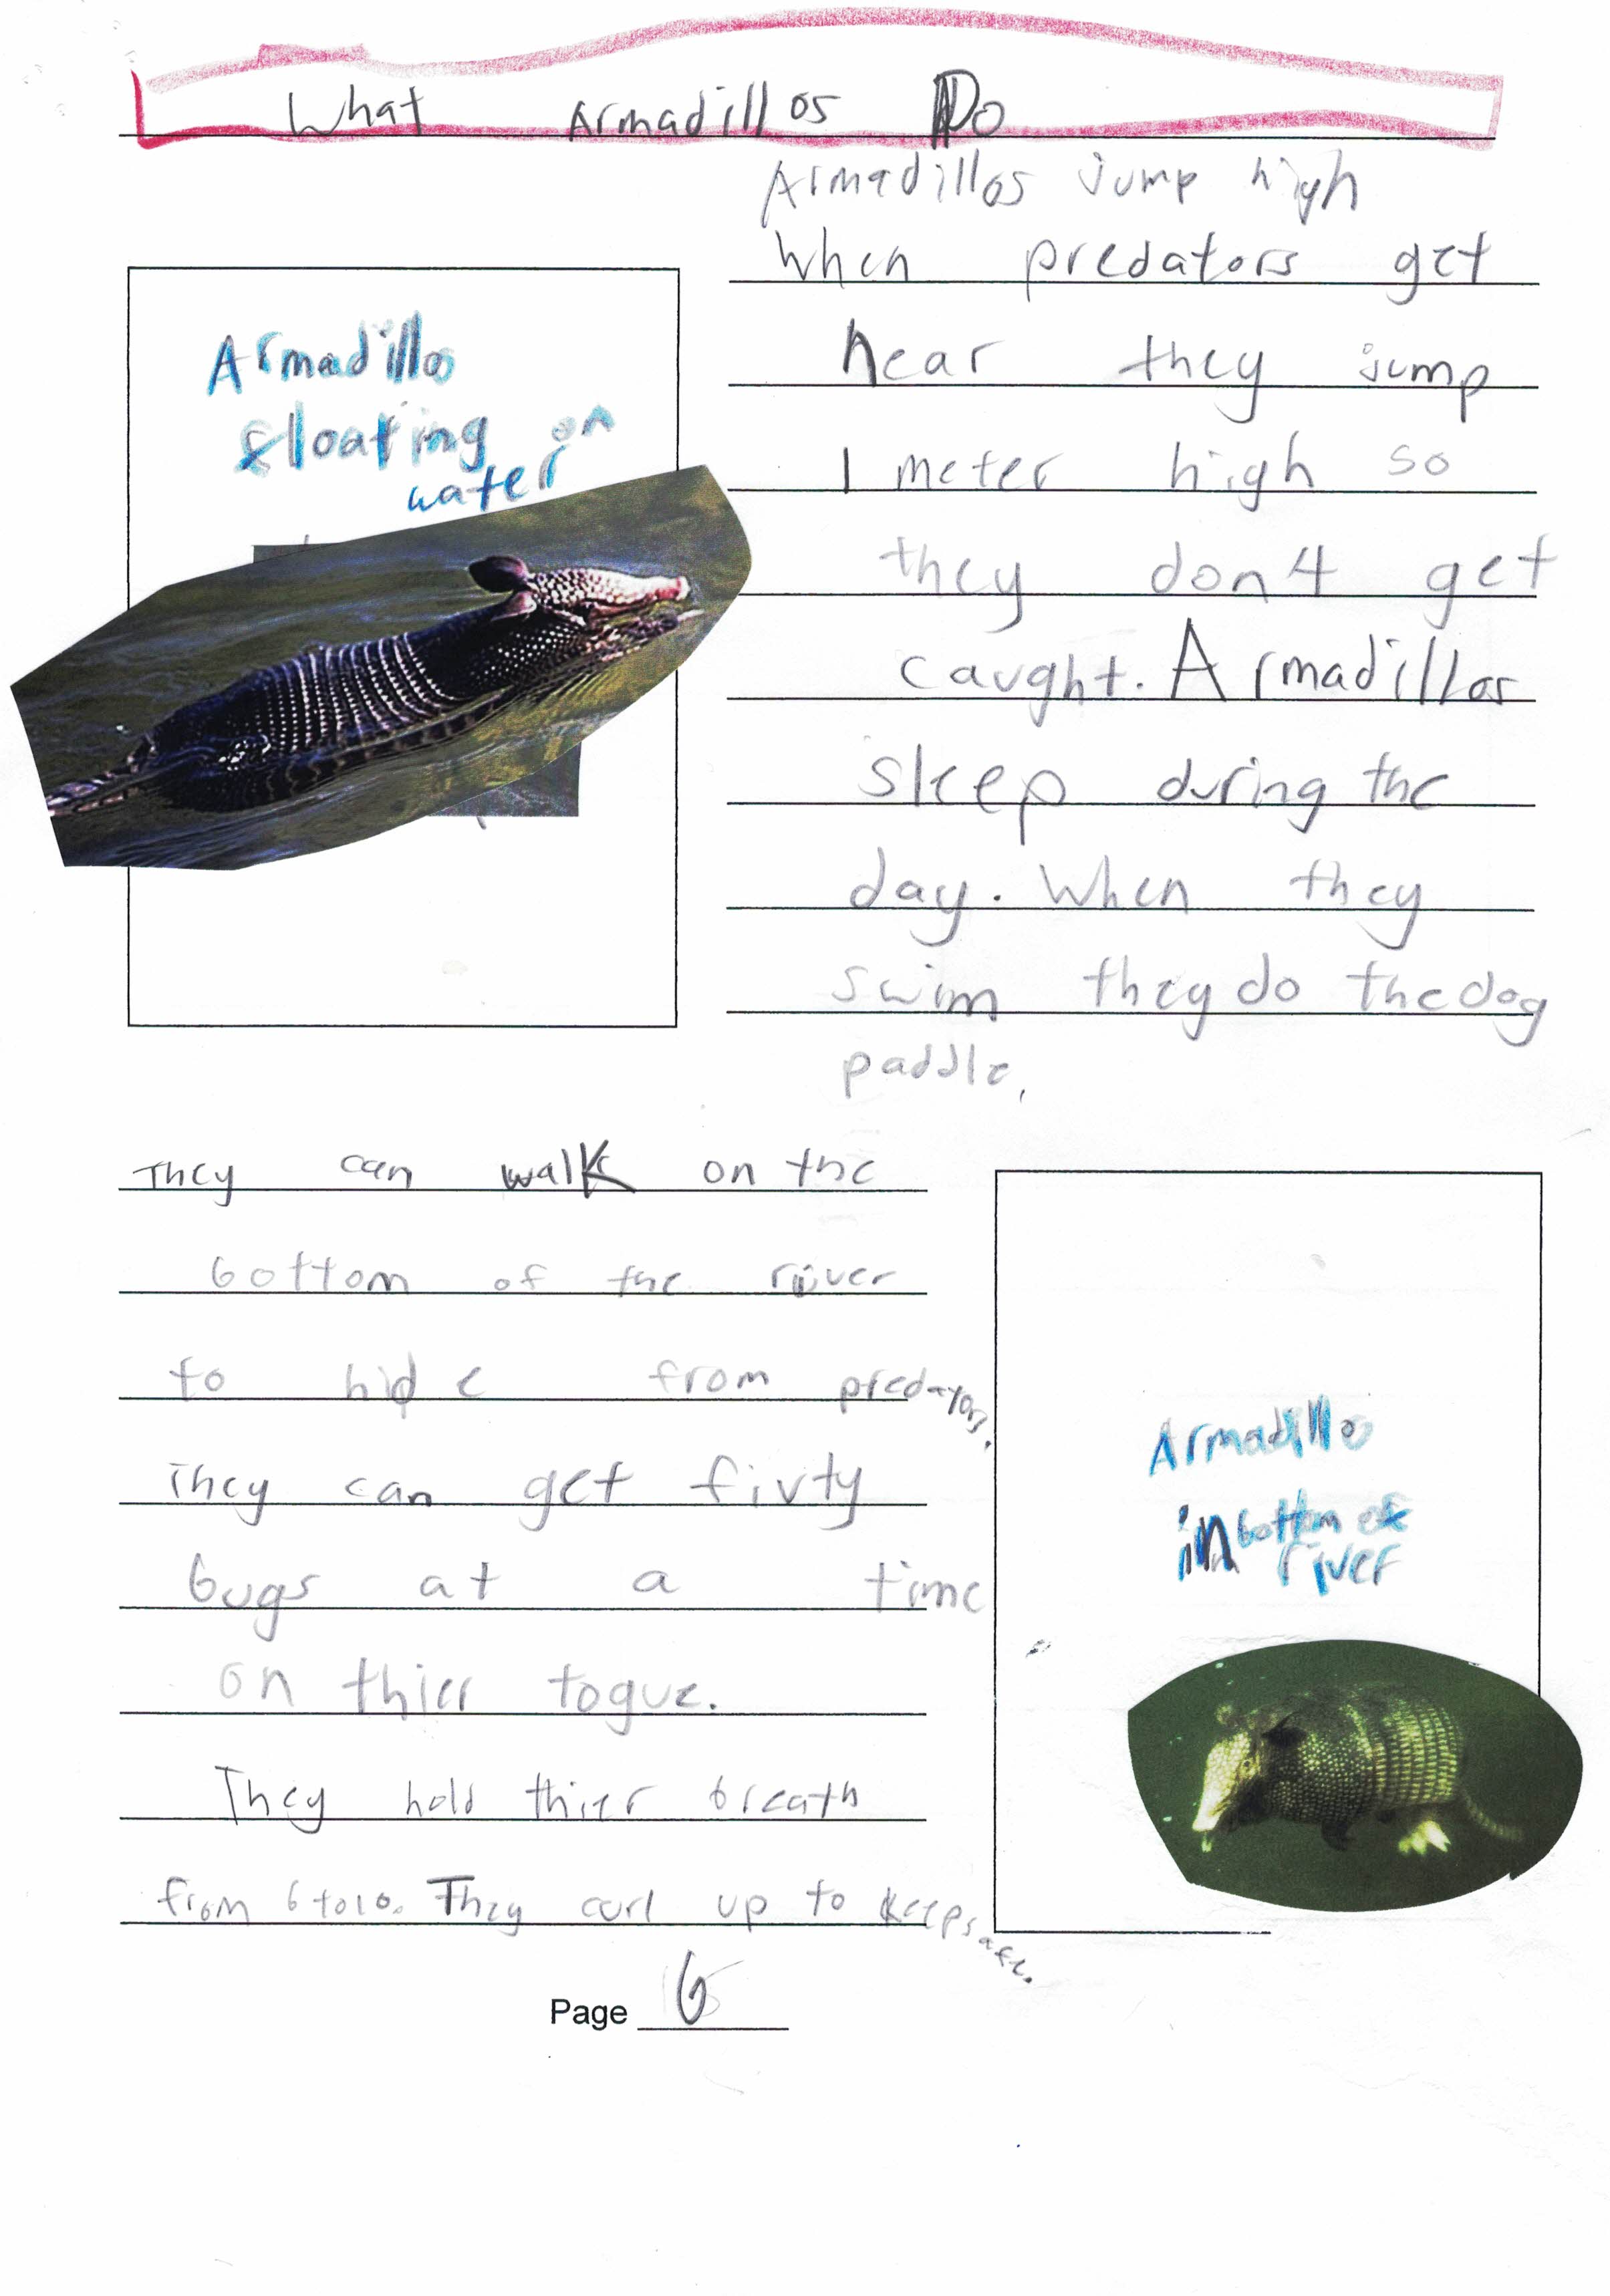 What Armadillos Do
Armadillos jump high
When predators get
near they jump
1 meter high so
they don4 get
caught. Armadillos
sleep during the
day. When they
swim they do the dog
paddle,
Armadillo
floating on
water
They can walk on the
bottom of the river
to hide from predators.
They can get fivty
bugs at a time
on thier togue.
They hold thier breath
from 6 to 10. They curl up to keep safe.
Armadillo
in bottom of
river
Page 6